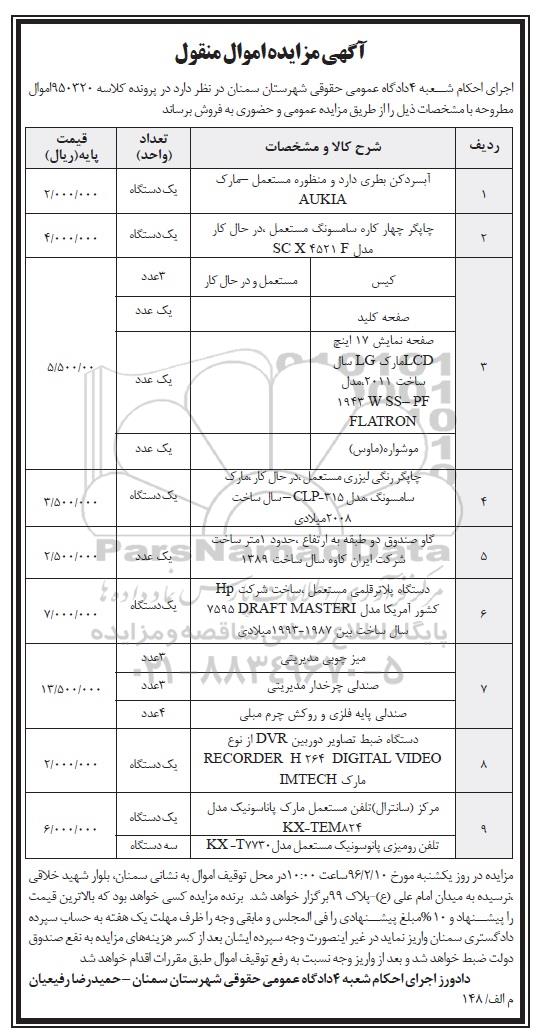 آگهی مزایده اموال منقول
اجرای احکام شعبه ۴دادگاه عمومی حقوقی شهرستان سمنان در نظر دارد در پرونده کلاسه ۹۵۰۳۲۰اموال
مطروحه با مشخصات ذیل را از طریق مزایده عمومی و حضوری به فروش برساند
ردیف شرح کالا و مشخصات تعداد (واحد) قیمت پایه(ریال)
۱ آبسردکن بطری دارد و منظوره مستعمل –مارک یک‌دستگاه ۲/۰۰۰/۰۰۰
AUKIA
۲ چاپگر چهار کاره سامسونگ مستعمل ،در حال کار یک‌دستگاه ۴/۰۰۰/۰۰۰
مدل SC X ۴۵۲۱ F
۳ کیس مستعمل و در حال کار ۳عدد ۵/۵۰۰/۰۰
صفحه کلید یک عدد
صفحه نمایش ۱۷ اینچ
LCDمارک LG سال
ساخت ۲۰۱۱،مدل یک عدد
۱۹۴۳ W SS– PF
FLATRON
موشواره(ماوس) یک عدد
۴ چاپگر رنگی لیزری مستعمل ،در حال کار ،مارک یک‌دستگاه ۳/۵۰۰/۰۰۰
سامسونگ ،مدل CLP-۳۱۵ –سال ساخت
۲۰۰۸میلادی
۵ گاو صندوق دو طبقه به ارتفاع ،حدود ۱متر ساخت یک عدد ۲/۵۰۰/۰۰۰
شرکت ایران کاوه سال ساخت ۱۳۸۹
۶ دستگاه پلاترقلمی مستعمل ،ساخت شرکت Hp یک‌دستگاه ۷/۰۰۰/۰۰۰
کشور آمریکا مدل DRAFT MASTERI ۷۵۹۵
سال ساخت بین ۱۹۸۷-۱۹۹۳میلادی
۷ میز چوبی مدیریتی ۳عدد ۱۳/۵۰۰/۰۰۰
صندلی چرخدار مدیریتی ۳عدد
صندلی پایه فلزی و روکش چرم مبلی ۴عدد
۸ دستگاه ضبط تصاویر دوربین DVR از نوع یک‌دستگاه ۲/۰۰۰/۰۰۰
RECORDER H ۲۶۴ DIGITAL VIDEO
مارک IMTECH
۹ مرکز (سانترال)تلفن مستعمل مارک پاناسونیک مدل یک‌دستگاه ۶/۰۰۰/۰۰۰
KX-TEM۸۲۴
تلفن رومیزی پانوسونیک مستعمل مدل KX -T۷۷۳۰ سه دستگاه
مزایده در روز یکشنبه مورخ ۹۶/۲/۱۰ساعت ۱۰:۰۰در محل توقیف اموال به نشانی سمنان، بلوار شهید خلاقی
،نرسیده به میدان امام علی (ع)–پلاک ۹۹برگزار خواهد شد. برنده مزایده کسی خواهد بود که بالاترین قیمت
را پیشنهاد و ۱۰%مبلغ پیشنهادی را فی المجلس و مابقی وجه را ظرف مهلت یک هفته به حساب سپرده
دادگستری سمنان واریز نماید در غیر اینصورت وجه سپرده ایشان بعد از کسر هزینه‌های مزایده به نفع صندوق
دولت ضبط خواهد شد و بعد از واریز وجه نسبت به رفع توقیف اموال طبق مقررات اقدام خواهد شد
دادورز اجرای احکام شعبه ۴دادگاه عمومی حقوقی شهرستان سمنان –حمیدرضا رفیعیان
م الف/ ۱۴۸
ParsNamadData
پایگاه اطلاع رسانی مناقصه و مزایده
۰۲۱-۸۸۳۴۹۶۷۰-۵